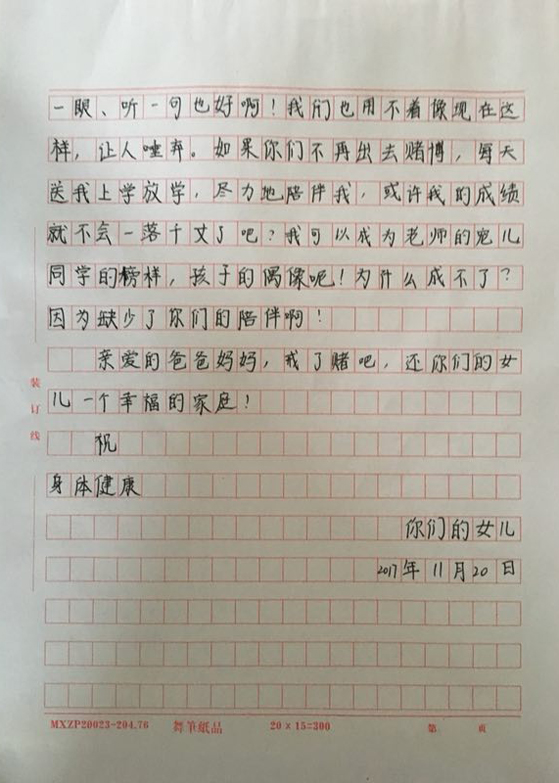 一眼、听一句也好啊！我们也用不着像现在这
样，让人唾弃。如果你们不再出去赌博，每天
送我上学放学，尽力地陪伴我，或许我的成绩
就不会一落千丈了吧？我可以成为老师的宠儿
同学的榜样，孩子的偶像呢！为什么成不了？
因为缺少了你们的陪伴啊！
亲爱的爸爸妈妈，戒了赌吧，还你们的女
儿一个幸福的家庭！
祝
身体健康
你们的女儿
2017年11月20日
装订线
MXZP20023-204.76 舞笔纸品 20×15=300 第 页